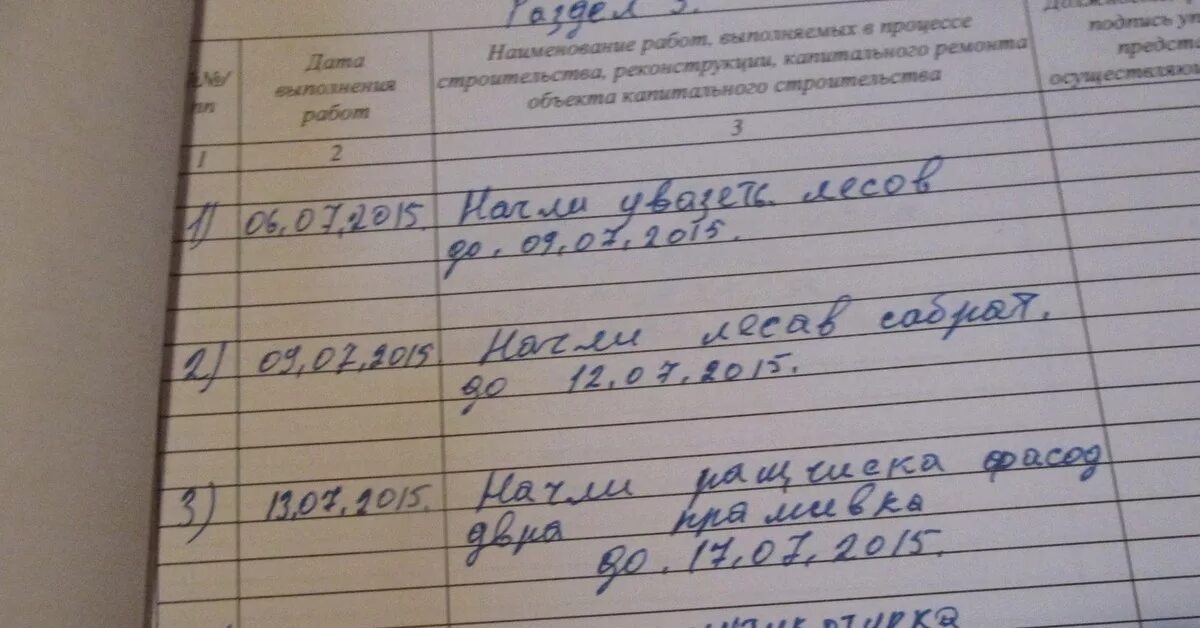 Раздел 3.
№/
пп
Дата
выполнения
работ
Наименование работ, выполняемых в процессе
строительства, реконструкции, капитального ремонта
объекта капитального строительства
подпись
предст
осуществляю
1
2
3
1) 06.07.2015. Начли увазеть лесов
до. 09.07.2015.
2) 09.07.2015 Начли лесав сабрат.
до 12.07.2015.
3) 13.07.2015. Начли ращчиска фасод
двра прамивка
до. 17.07.2015.